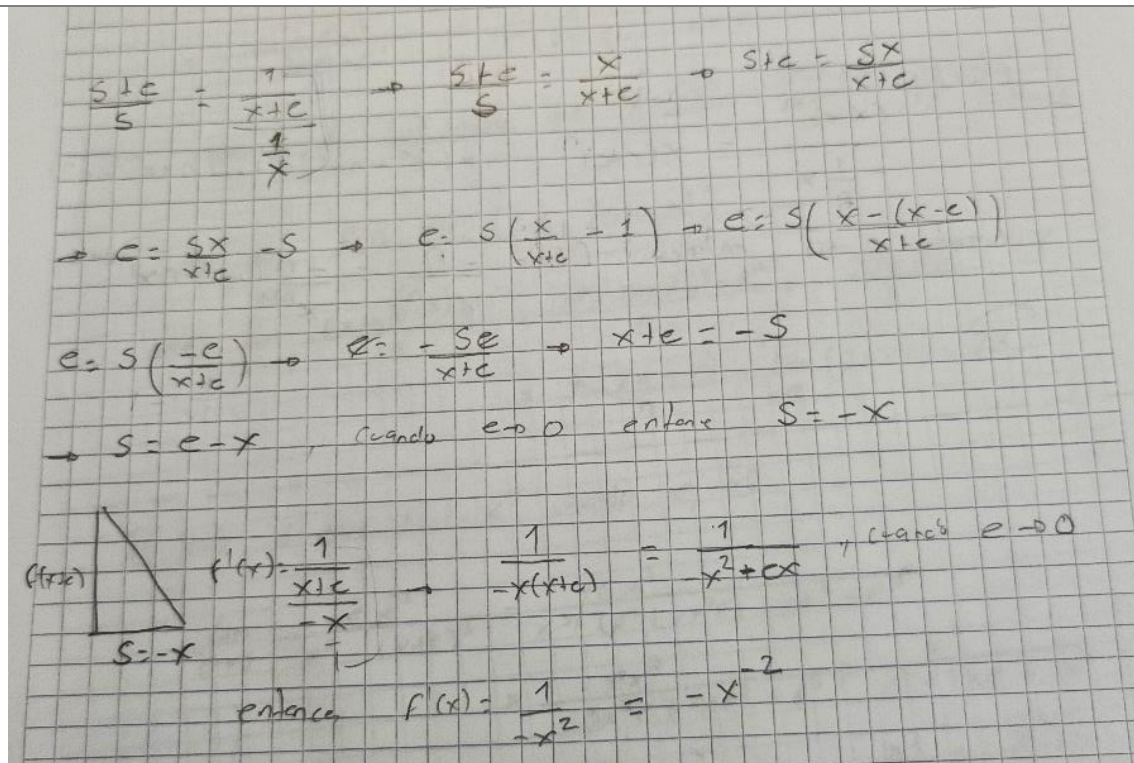 (s+e)/s = (1/(x+e))/(1/x) → (s+e)/s = x/(x+e) → s+e = sx/(x+e)
→ e = sx/(x+e) - s → e = s(x/(x+e) - 1) → e = s((x-(x-e))/(x+e))
e = s(-e/(x+e)) → e = -se/(x+e) → x+e = -s
→ s = e-x, cuando e→0 entonc s = -x
f(x+e) f'(x) = (1/(x+e))/(-x/1) → 1/(-x(x+e)) = 1/(-x²+ex), cuando e→0
s=-x
entonces f'(x) = 1/(-x²) = -x⁻²